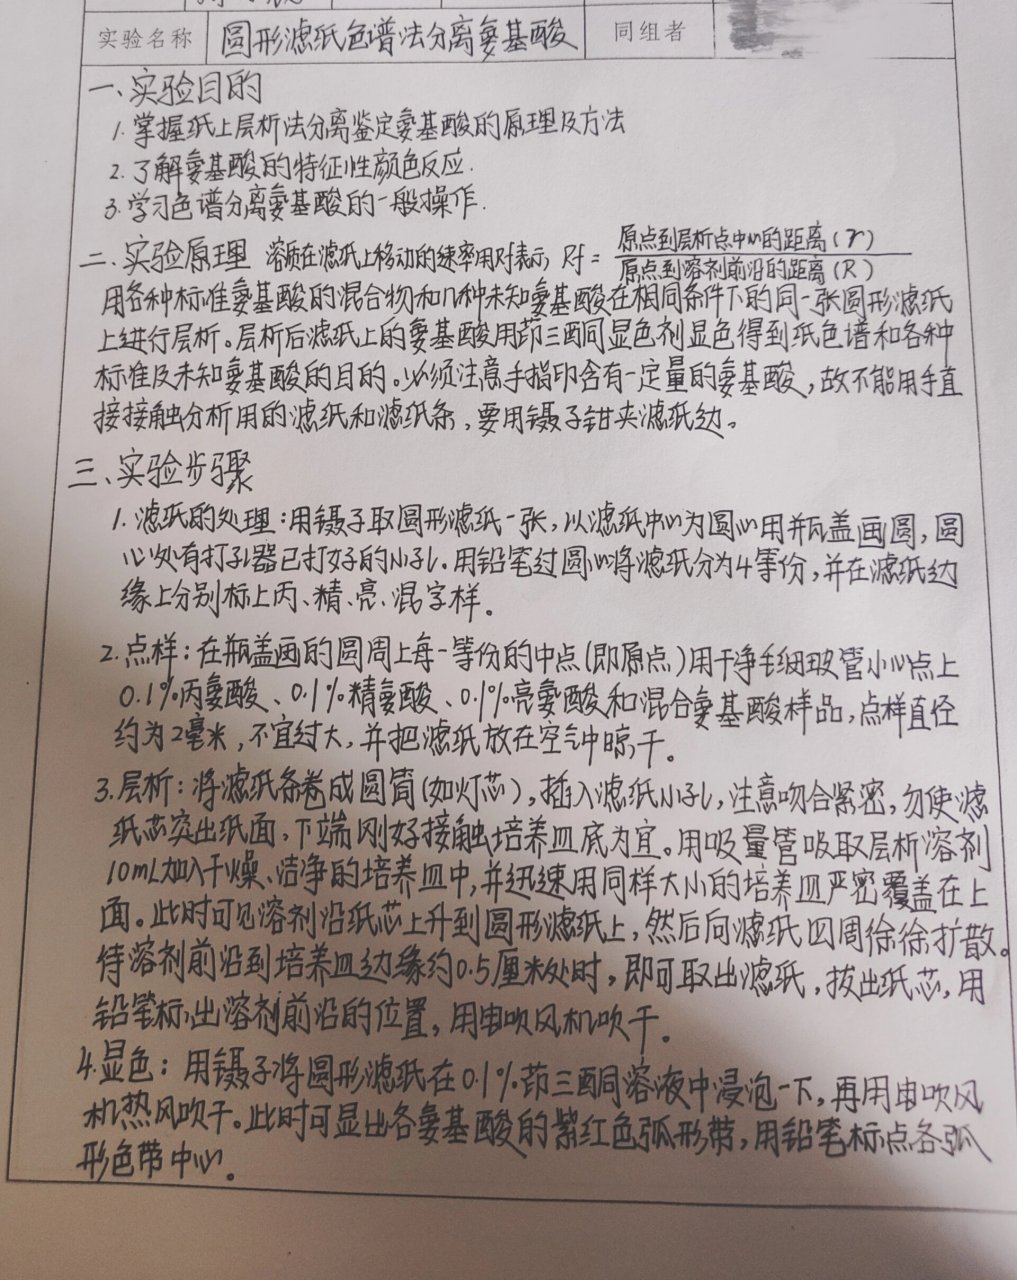 实验名称 圆形滤纸色谱法分离氨基酸 同组者
一、实验目的
1. 掌握纸上层析法分离鉴定氨基酸的原理及方法
2. 了解氨基酸的特征性颜色反应.
3. 学习色谱分离氨基酸的一般操作.
二、实验原理 溶质在滤纸上移动的速率用Rf表示, Rf = 原点到层析点中心的距离(r)
原点到溶剂前沿的距离(R)
用各种标准氨基酸的混合物和几种未知氨基酸在相同条件下的同一张圆形滤纸
上进行层析。层析后滤纸上的氨基酸用茚三酮显色剂显色得到纸色谱和各种
标准及未知氨基酸的目的。必须注意手指印含有一定量的氨基酸,故不能用手直
接接触分析用的滤纸和滤纸条,要用镊子钳夹滤纸边。
三、实验步骤
1. 滤纸的处理:用镊子取圆形滤纸一张,以滤纸中心为圆心用瓶盖画圆,圆
心处有打孔器已打好的小孔.用铅笔过圆心将滤纸分为4等份,并在滤纸边
缘上分别标上丙、精、亮、混字样。
2. 点样:在瓶盖画的圆周上每一等份的中点(即原点)用干净毛细玻管小心点上
0.1%丙氨酸、0.1%精氨酸、0.1%亮氨酸和混合氨基酸样品,点样直径
约为2毫米,不宜过大,并把滤纸放在空气中晾干。
3. 层析:将滤纸条卷成圆筒(如灯芯),插入滤纸小孔,注意吻合紧密,勿使滤
纸芯突出纸面,下端刚好接触培养皿底为宜。用吸量管吸取层析溶剂
10mL加入干燥、洁净的培养皿中,并迅速用同样大小的培养皿严密覆盖在上
面。此时可见溶剂沿纸芯上升到圆形滤纸上,然后向滤纸四周徐徐扩散。
待溶剂前沿到培养皿边缘约0.5厘米处时,即可取出滤纸,拔出纸芯,用
铅笔标出溶剂前沿的位置,用电吹风机吹干。
4. 显色:用镊子将圆形滤纸在0.1%茚三酮溶液中浸泡一下,再用电吹风
机热风吹干。此时可显出各氨基酸的紫红色弧形带,用铅笔标点各弧
形色带中心。